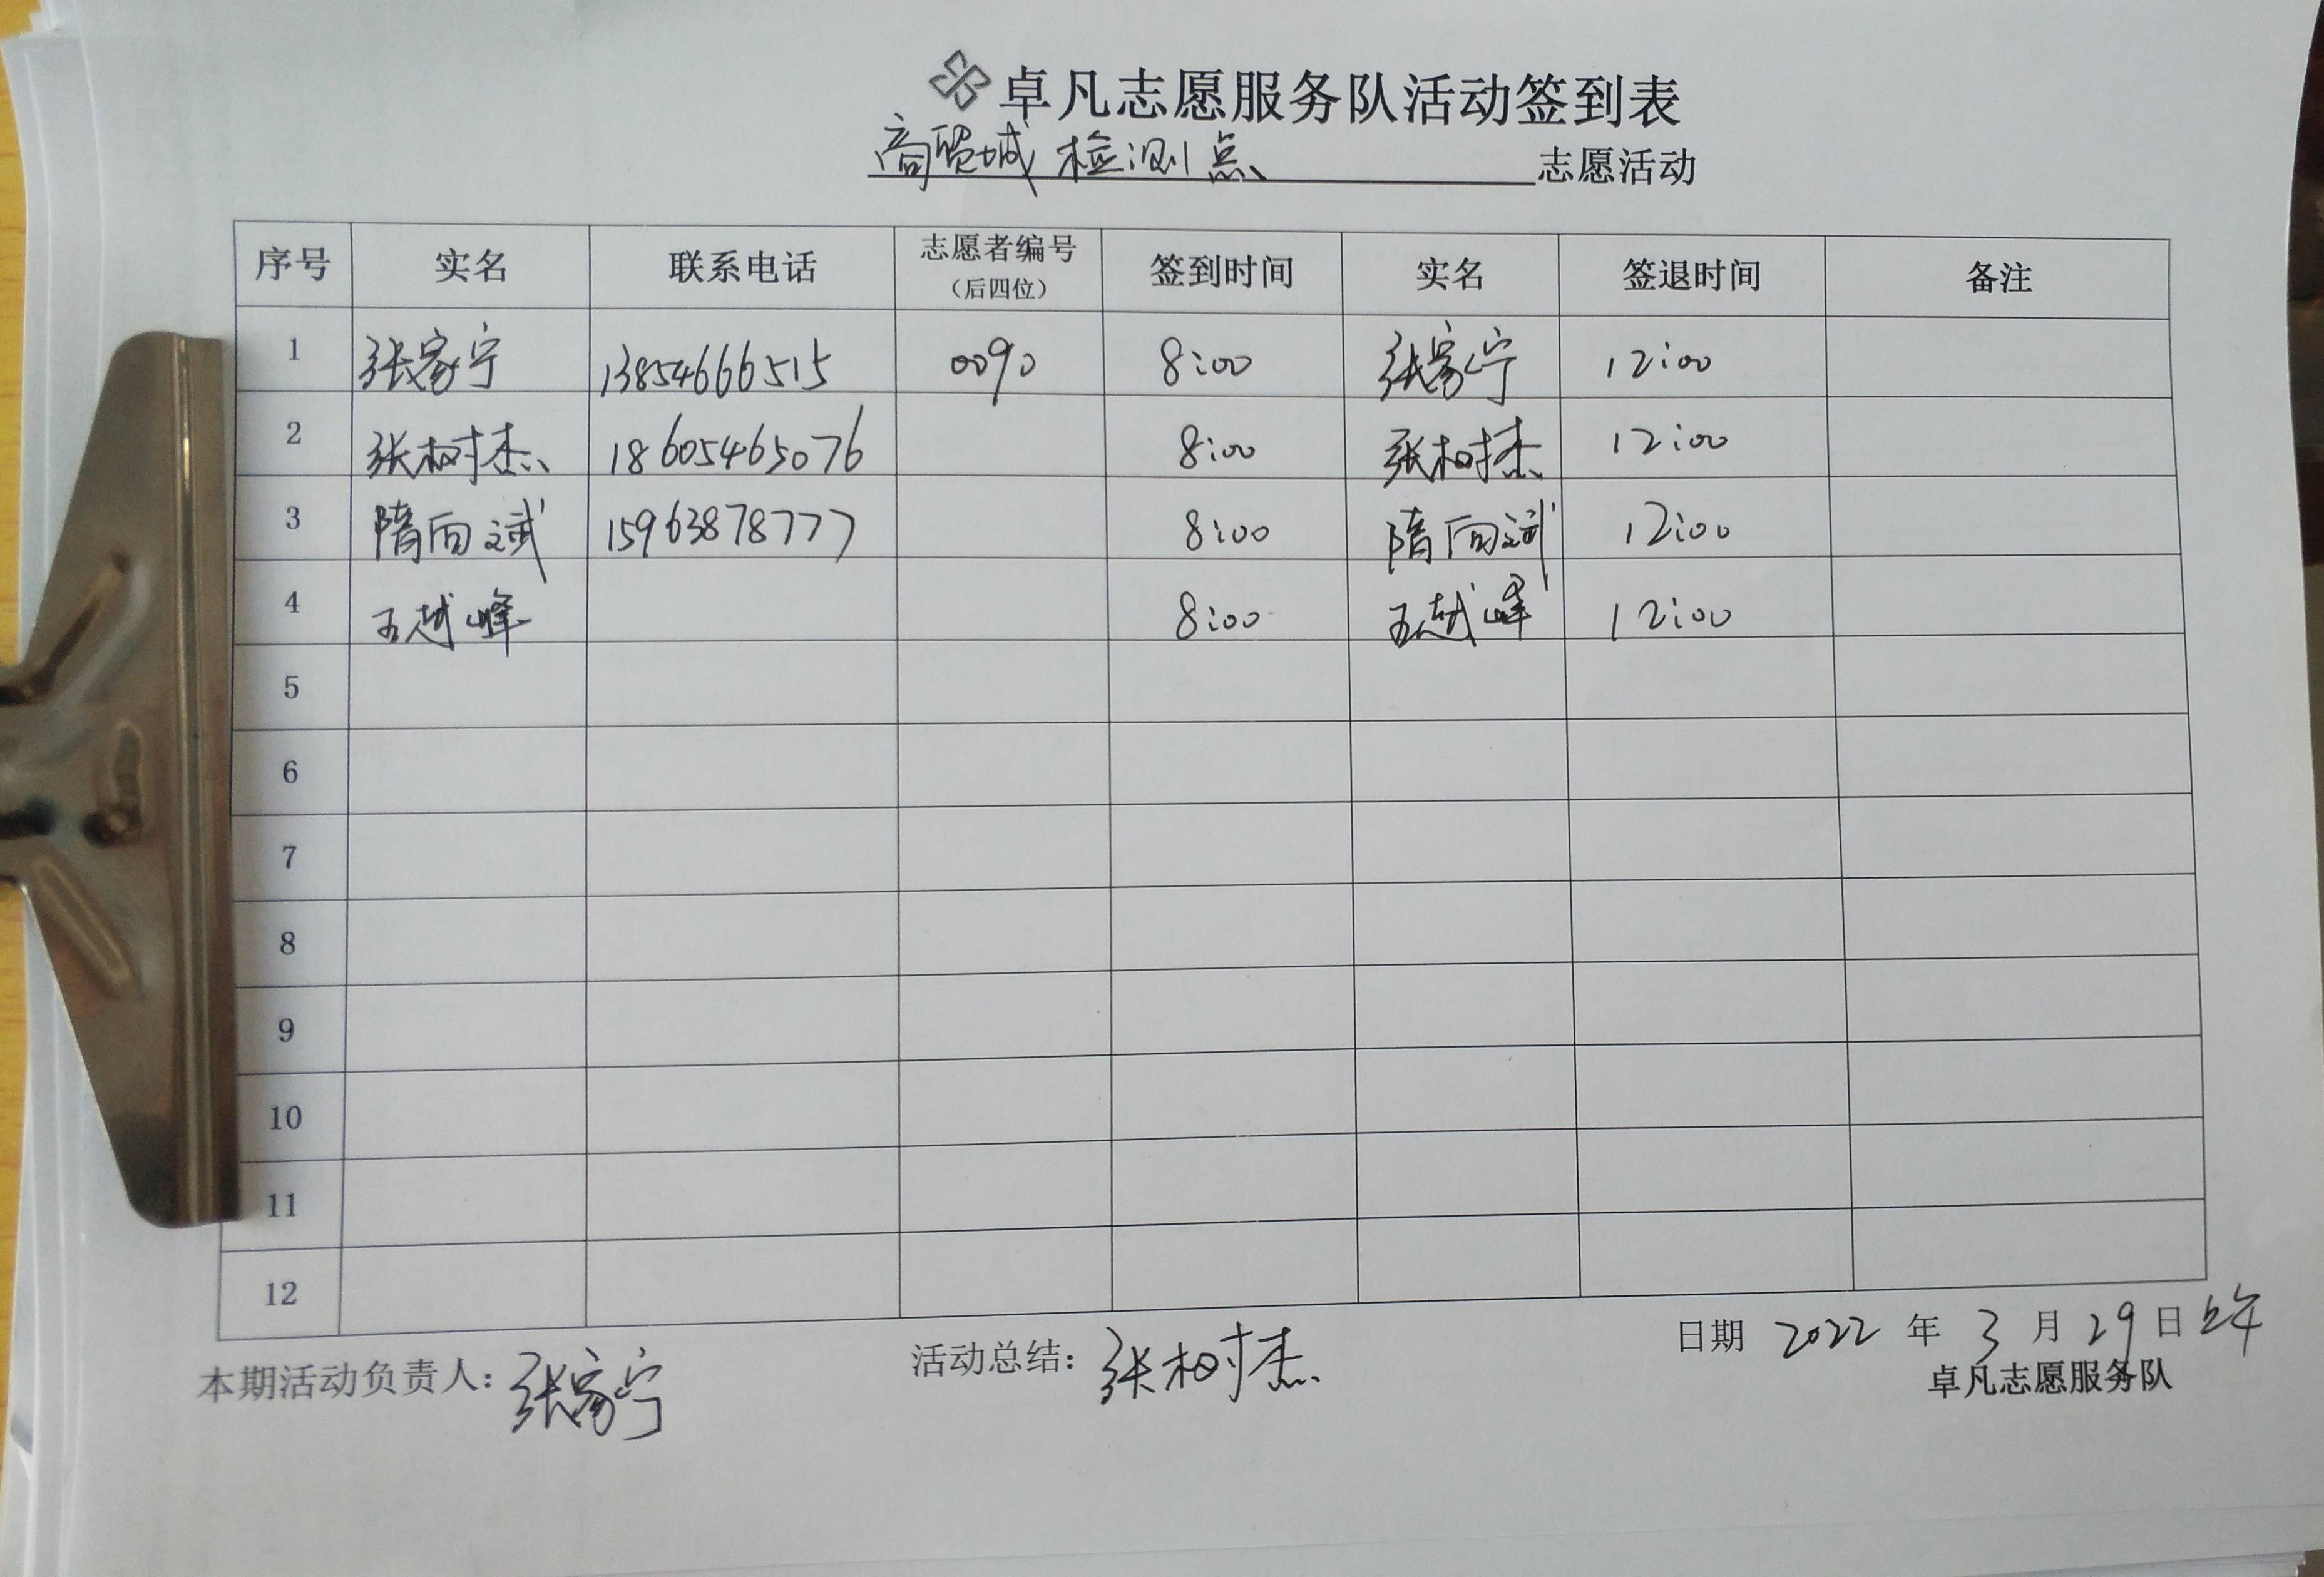 卓凡志愿服务队活动签到表
商贸城 检测点 志愿活动
序号 实名 联系电话 志愿者编号（后四位） 签到时间 实名 签退时间 备注
1 张家宁 13854666515 0090 8:00 张家宁 12:00
2 张树杰 18605465076 8:00 张树杰 12:00
3 隋向斌 15963878777 8:00 隋向斌 12:00
4 王越峰 8:00 王越峰 12:00
5
6
7
8
9
10
11
12
本期活动负责人：张家宁 活动总结：张树杰 日期 2022 年 3 月 29 日 上午
卓凡志愿服务队